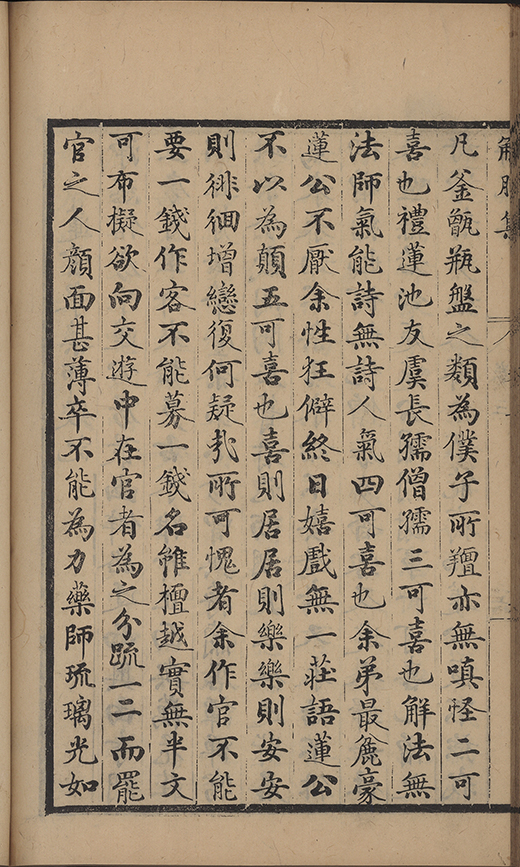 解脫集
凡釜甑瓶盤之類為僕子所羶亦無嗔怪二可
喜也禮蓮池友虞長孺僧孺三可喜也解法無
法師氣能詩無詩人氣四可喜也余弟最麁豪
蓮公不厭余性狂僻終日嬉戲無一莊語蓮公
不以為顛五可喜也喜則居居則樂樂則安安
則徘徊增戀復何疑㢤所可愧者余作官不能
要一錢作客不能募一錢名雖檀越實無半文
可布擬欲向交遊中在官者為之分䟽一二而罷
官之人顏面甚薄卒不能為力藥師琉璃光如